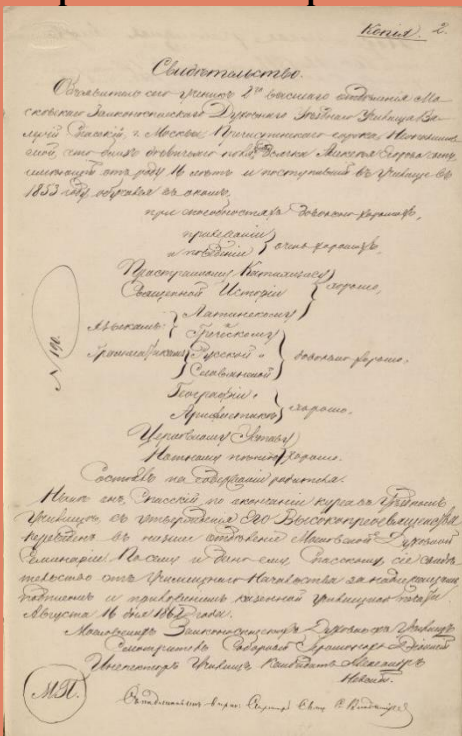 Копія 2.
Свидѣтельство.
Объявитель сего ученикъ 2го высшаго отдѣленія Мо-
сковскаго Заиконоспасскаго Духовнаго Уѣзднаго Училища Ва-
Спасскій, г. Москвы, Пречистенскаго сорока
что близь Дѣвичьяго поля,
имѣющій отъ роду 16 лѣтъ и поступившій въ Училище въ
1853 году, обучался въ ономъ,
при способностяхъ довольно хорошихъ,
прилежаніи
и поведеніи } очень хорошихъ,
Пространному Катихизису
Священной Исторіи } хорошо,
Языкамъ: { Латинскому
Греческому
Русской и
Славянской } довольно хорошо.
Географіи и
Ариѳметикѣ } хорошо.
Церковному Уставу
Нотному пѣнію } хорошо.
N 190.
Состоялъ на содержаніи родителя.
Нынѣ онъ, Спасскій по окончаніи курса въ Уѣздномъ
Училищѣ, съ утвержденія Его Высокопреосвященства
переведенъ въ низшее отдѣленіе Московской Духовной
Семинаріи. Посему и дано ему, Спасскому, сіе свидѣ-
тельство отъ Училищнаго Начальства за надлежащимъ
подписомъ и приложеніемъ казенной Училищной печати.
Августа 16 дня года.
Духовныхъ Училищъ
Смотритель
Инспекторъ Училищъ Кандидатъ Александръ
М.П.
Съ подлиннымъ вѣрно: